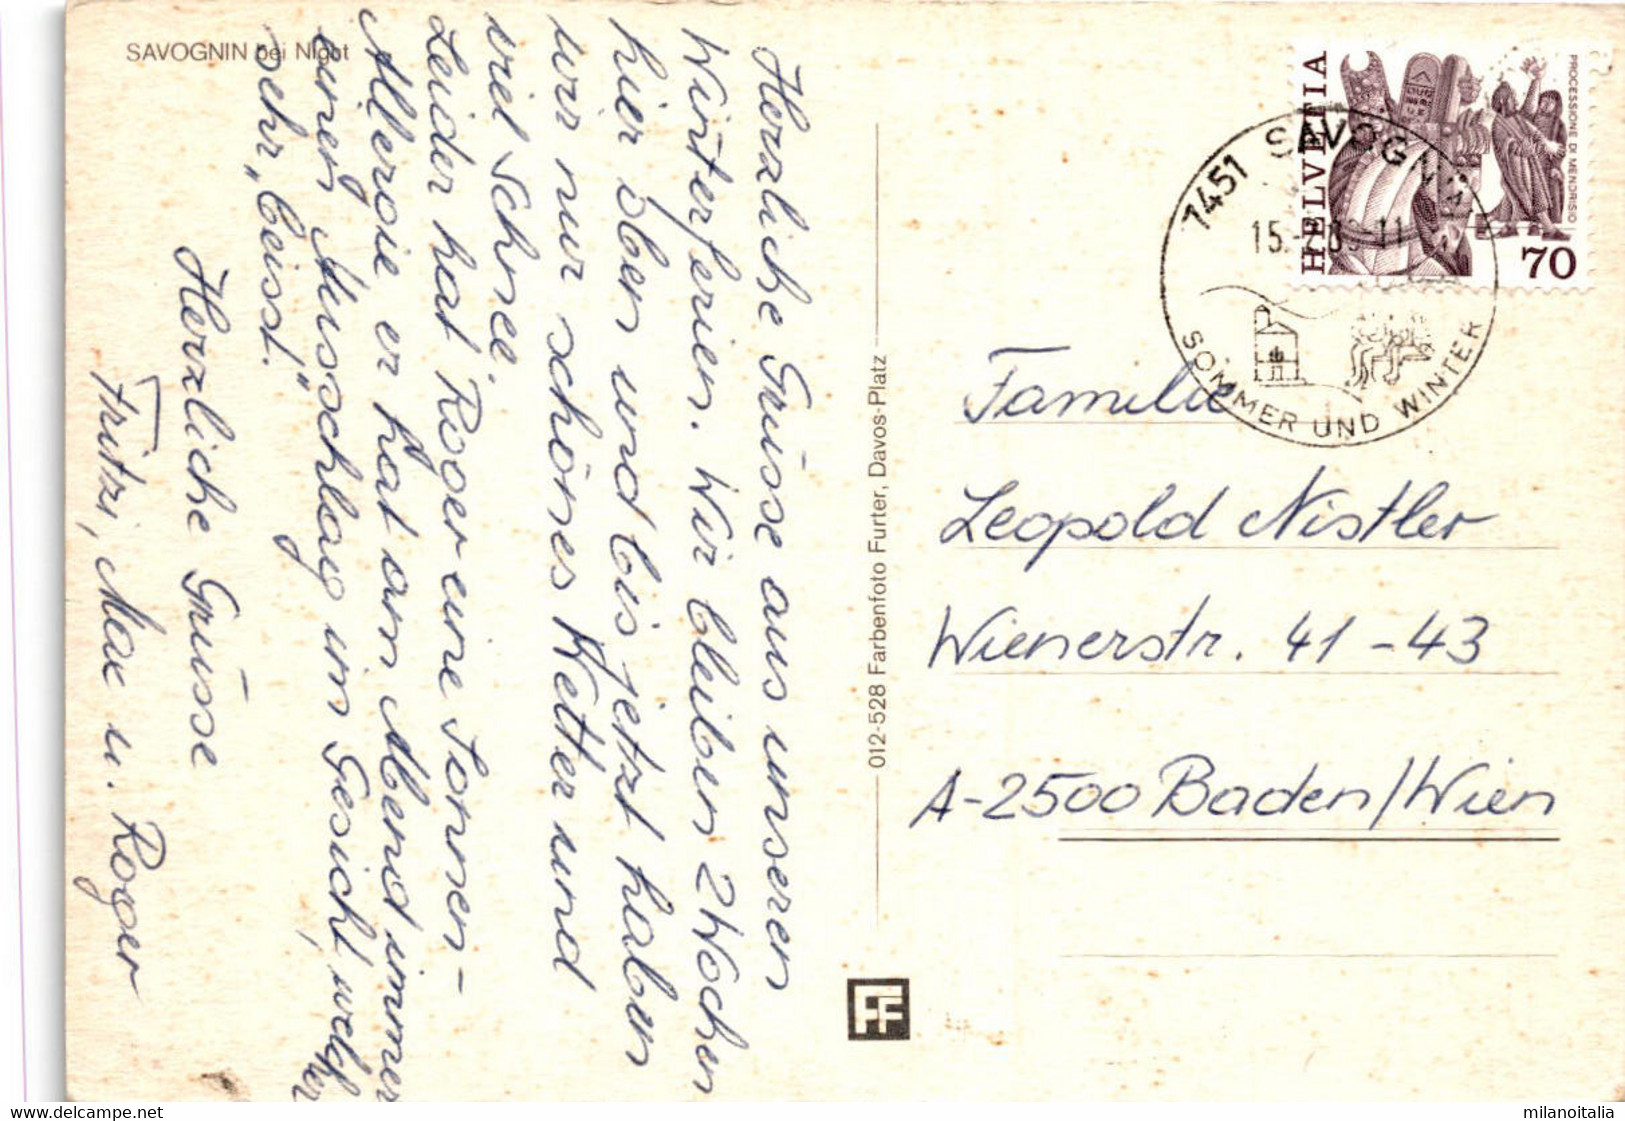 SAVOGNIN bei Night
Herzliche Grüsse aus unseren
Winterferien. Wir bleiben 2 Wochen
hier oben und bis jetzt haben
wir nur schönes Wetter und
viel Schnee.
Leider hat Roger eine Sonnen-
Allergie er hat am Abend immer
einen Ausschlag im Gesicht, welcher
sehr „beisst."
Herzliche Grüsse
Fritzi, Max u. Roger
012-528 Farbenfoto Furter, Davos-Platz
FF
HELVETIA
PROCESSIONE DI MENDRISIO
70
7451 SAVOGNIN
SOMMER UND WINTER
Familie
Leopold Nistler
Wienerstr. 41-43
A-2500 Baden/Wien
delcampe.net
milanoitalia